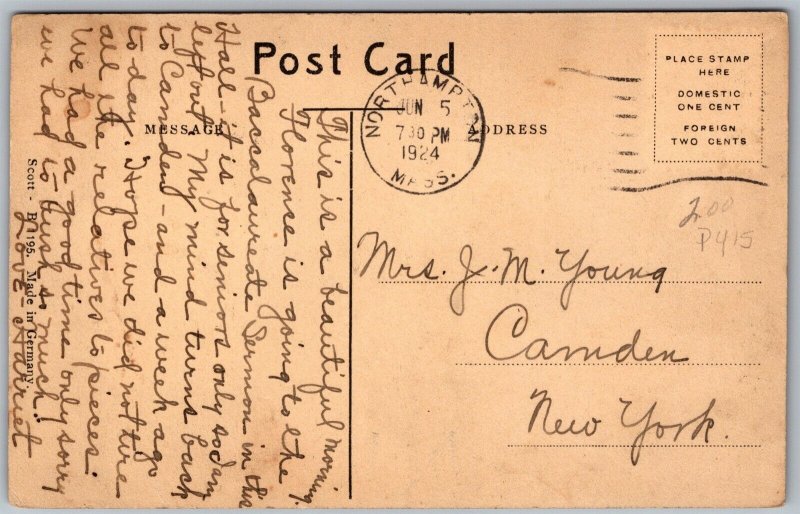 Post Card
MESSAGE
ADDRESS
PLACE STAMP
HERE
DOMESTIC
ONE CENT
FOREIGN
TWO CENTS
NORTHAMPTON
JUN 5
7 30 PM
1924
MASS.
2.00
P415
Mrs. J. M. Young
Camden
New York.
This is a beautiful morning.
Florence is going to the
Baccalaureate Sermon in this
Hall - it is for seniors only so I am
left out. My mind turns back
to Camden - and a week ago
to day. Hope we did not tire
all the relatives to pieces.
We had a good time only sorry
we had to rush so much.
Love - Harriet
Scott - B 1195. Made in Germany.